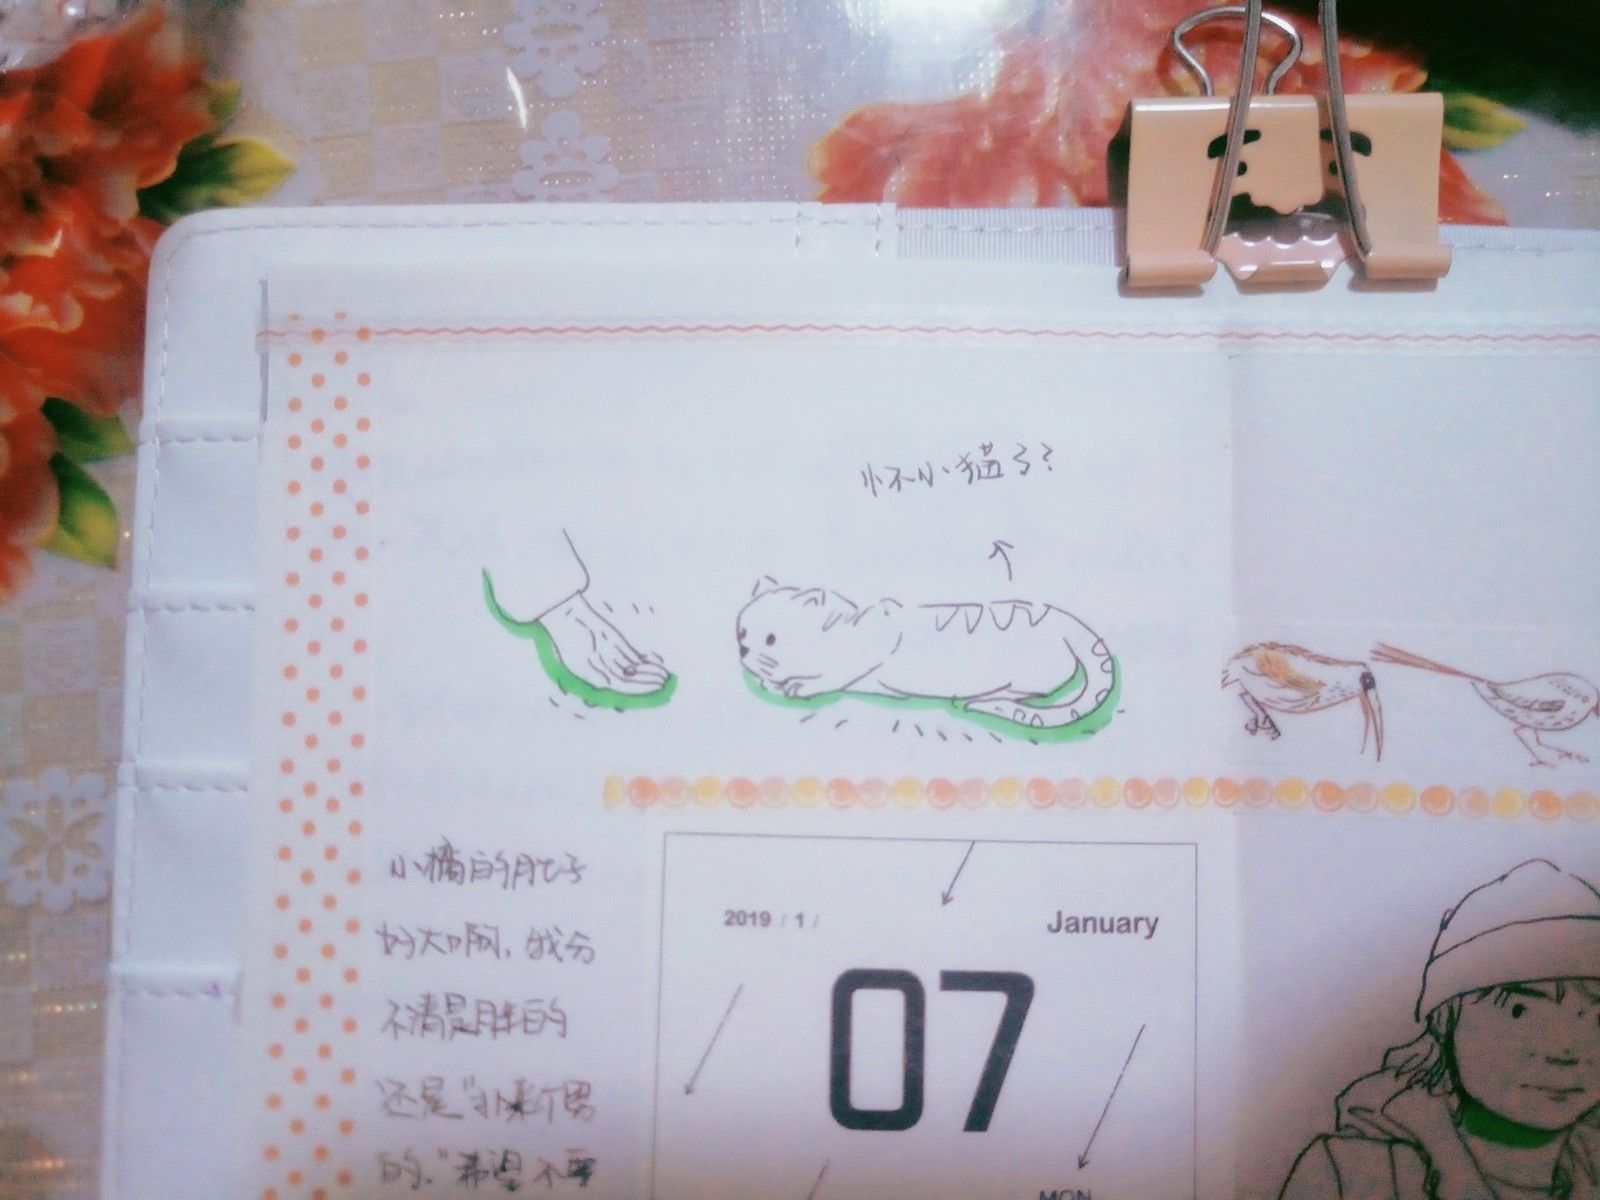 怀小猫了?
小橘的肚子
好大啊,我分
不清是胖的
还是
的,"希望不要
2019 / 1 /
January
07
MON